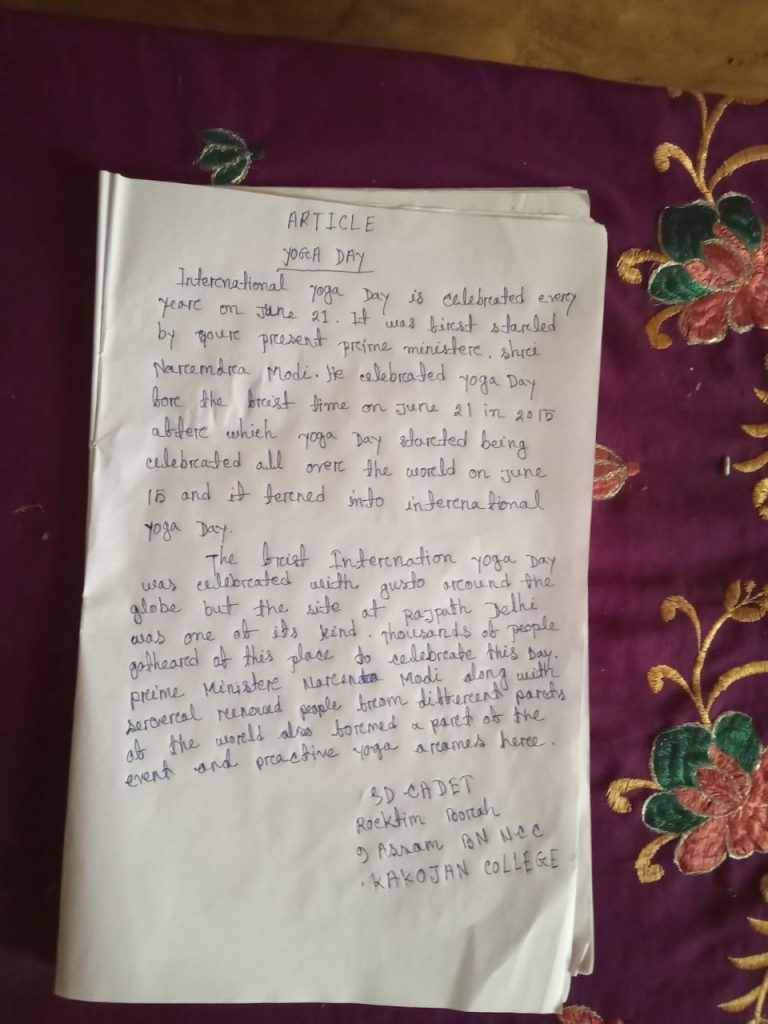 ARTICLE
YOGA DAY
International yoga Day is celebrated every
year on June 21. It was first started
by your present prime minister. shri
Narendra Modi. He celebrated yoga Day
for the first time on June 21 in 2015
after which yoga Day started being
celebrated all over the world on June
15 and it terned into international
yoga Day.
The first Internation yoga Day
was celebrated with gusto around the
globe but the site at Rajpath Delhi
was one of its kind. Thousands of people
gatheared at this place to celebrate this Day.
prime Minister Narendra Modi along with
serveral renowed people from different parts
of the world also formed a part of the
event and practive yoga arames here.
SD CADET
Rocktim Borah
9 Assam BN NCC
KAKOJAN COLLEGE